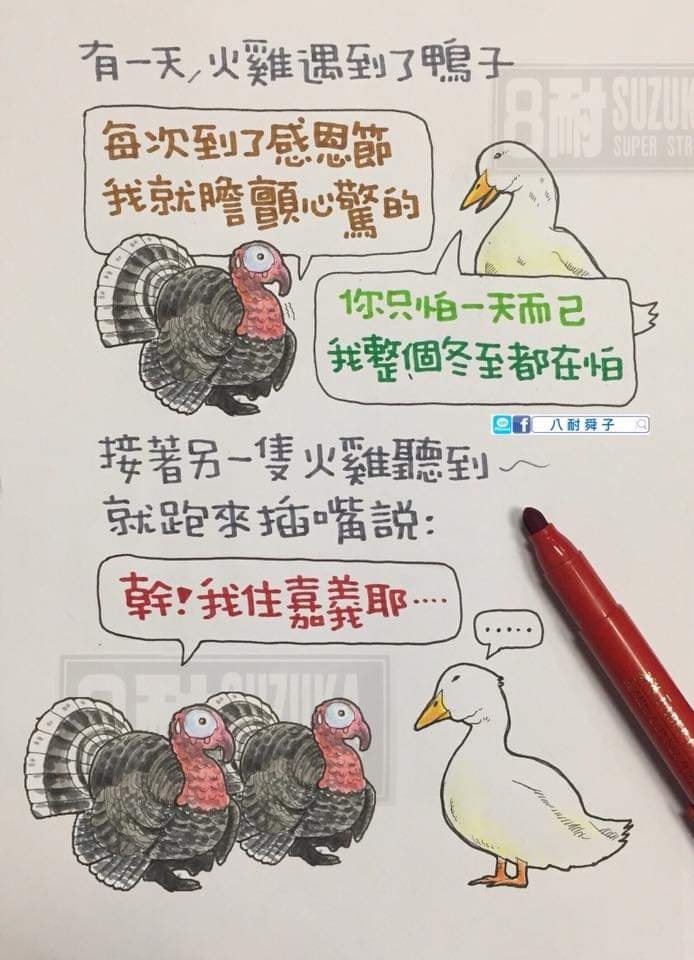 有一天,火雞遇到了鴨子
8耐 SUZUK
SUPER STR
每次到了感恩節
我就膽顫心驚的
你只怕一天而已
我整個冬至都在怕
八耐舜子
接著另一隻火雞聽到~
就跑來插嘴說:
幹!我住嘉義耶....
.....
8耐 SUZUKA